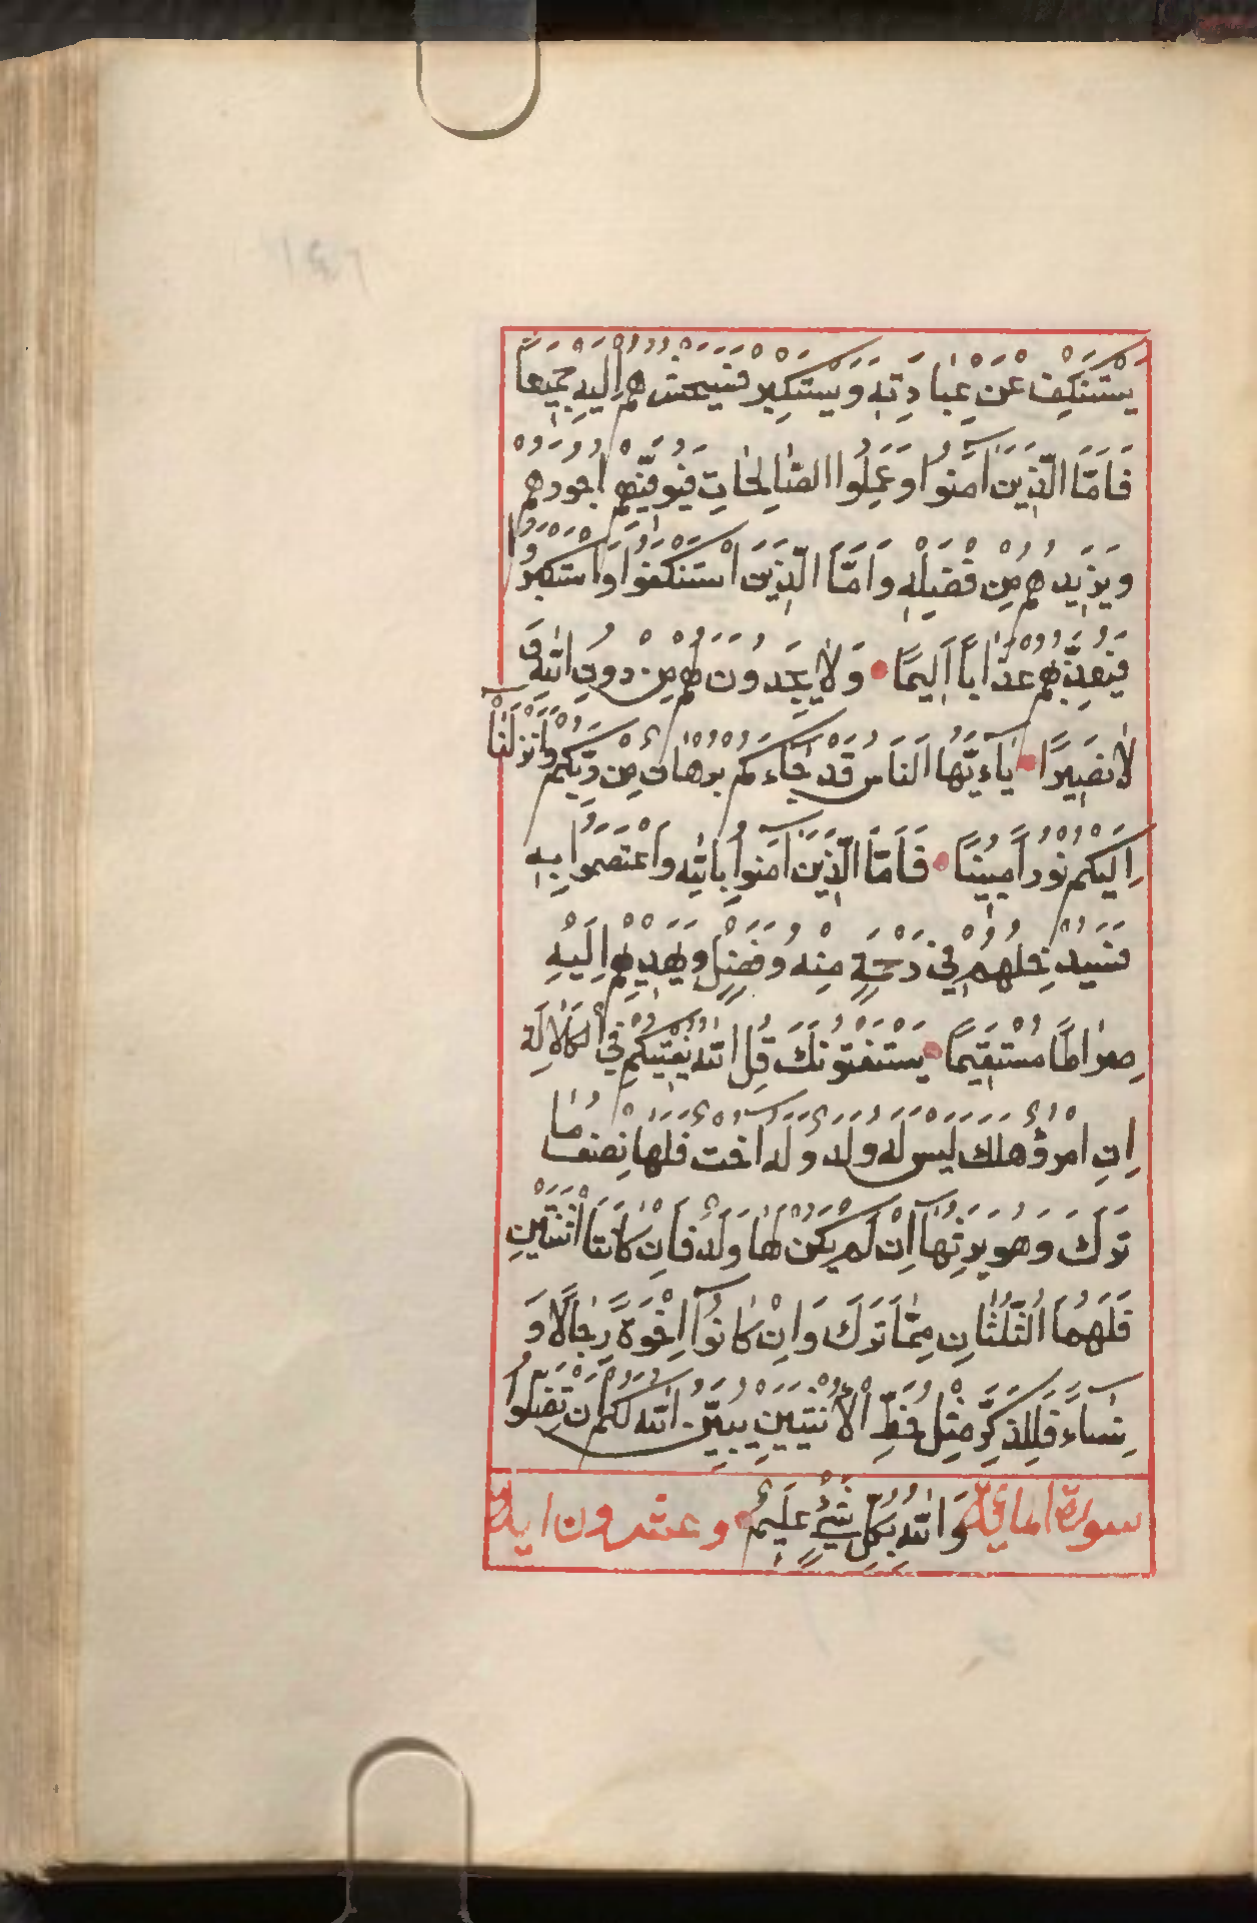 يَسْتَنْكِفْ عَنْ عِبَادِتِهِ وَيَسْتَكْبِرْ فَسَيَحْشُرُهُمْ اِلَيْهِ جَمِيعًا
فَاَمَّا الَّذِينَ اٰمَنُوا وَعَمِلُوا الصَّالِحَاتِ فَيُوَفِّيهِمْ اُجُورَهُمْ
وَيَزِيدُهُمْ مِنْ فَضْلِهِ وَاَمَّا الَّذِينَ اسْتَنْكَفُوا وَاسْتَكْبَرُوا
فَيُعَذِّبُهُمْ عَذَابًا اَلِيمًا • وَلَا يَجِدُونَ لَهُمْ مِنْ دُونِ اللّٰهِ وَ
لَا نَصِيرًا • يَآءَيُّهَا النَّاسُ قَدْ جَاءَكُمْ بُرْهَانٌ مِنْ رَبِّكُمْ وَاَنْزَلْنَا
اِلَيْكُمْ نُورًا مُبِينًا • فَاَمَّا الَّذِينَ اٰمَنُوا بِاللّٰهِ وَاعْتَصَمُوا بِهِ
فَسَيُدْخِلُهُمْ فِي رَحْمَةٍ مِنْهُ وَفَضْلٍ وَيَهْدِيهِمْ اِلَيْهِ
صِرَاطًا مُسْتَقِيمًا • يَسْتَفْتُونَكَ قُلِ اللّٰهُ يُفْتِيكُمْ فِي الْكَلَالَةِ
اِنِ امْرُؤٌ هَلَكَ لَيْسَ لَهُ وَلَدٌ وَلَهُ اُخْتٌ فَلَهَا نِصْفُ مَا
تَرَكَ وَهُوَ يَرِثُهَا اِنْ لَمْ يَكُنْ لَهَا وَلَدٌ فَاِنْ كَانَتَا اثْنَتَيْنِ
فَلَهُمَا الثُّلُثَانِ مِمَّا تَرَكَ وَاِنْ كَانُوا اِخْوَةً رِجَالًا وَ
نِسَاءً فَلِلذَّكَرِ مِثْلُ حَظِّ الْاُنْثَيَيْنِ يُبَيِّنُ اللّٰهُ لَكُمْ اَنْ تَضِلُّوا
سورة المائدة وَاللّٰهُ بِكُلِّ شَيْءٍ عَلِيمٌ • وعشرون اية